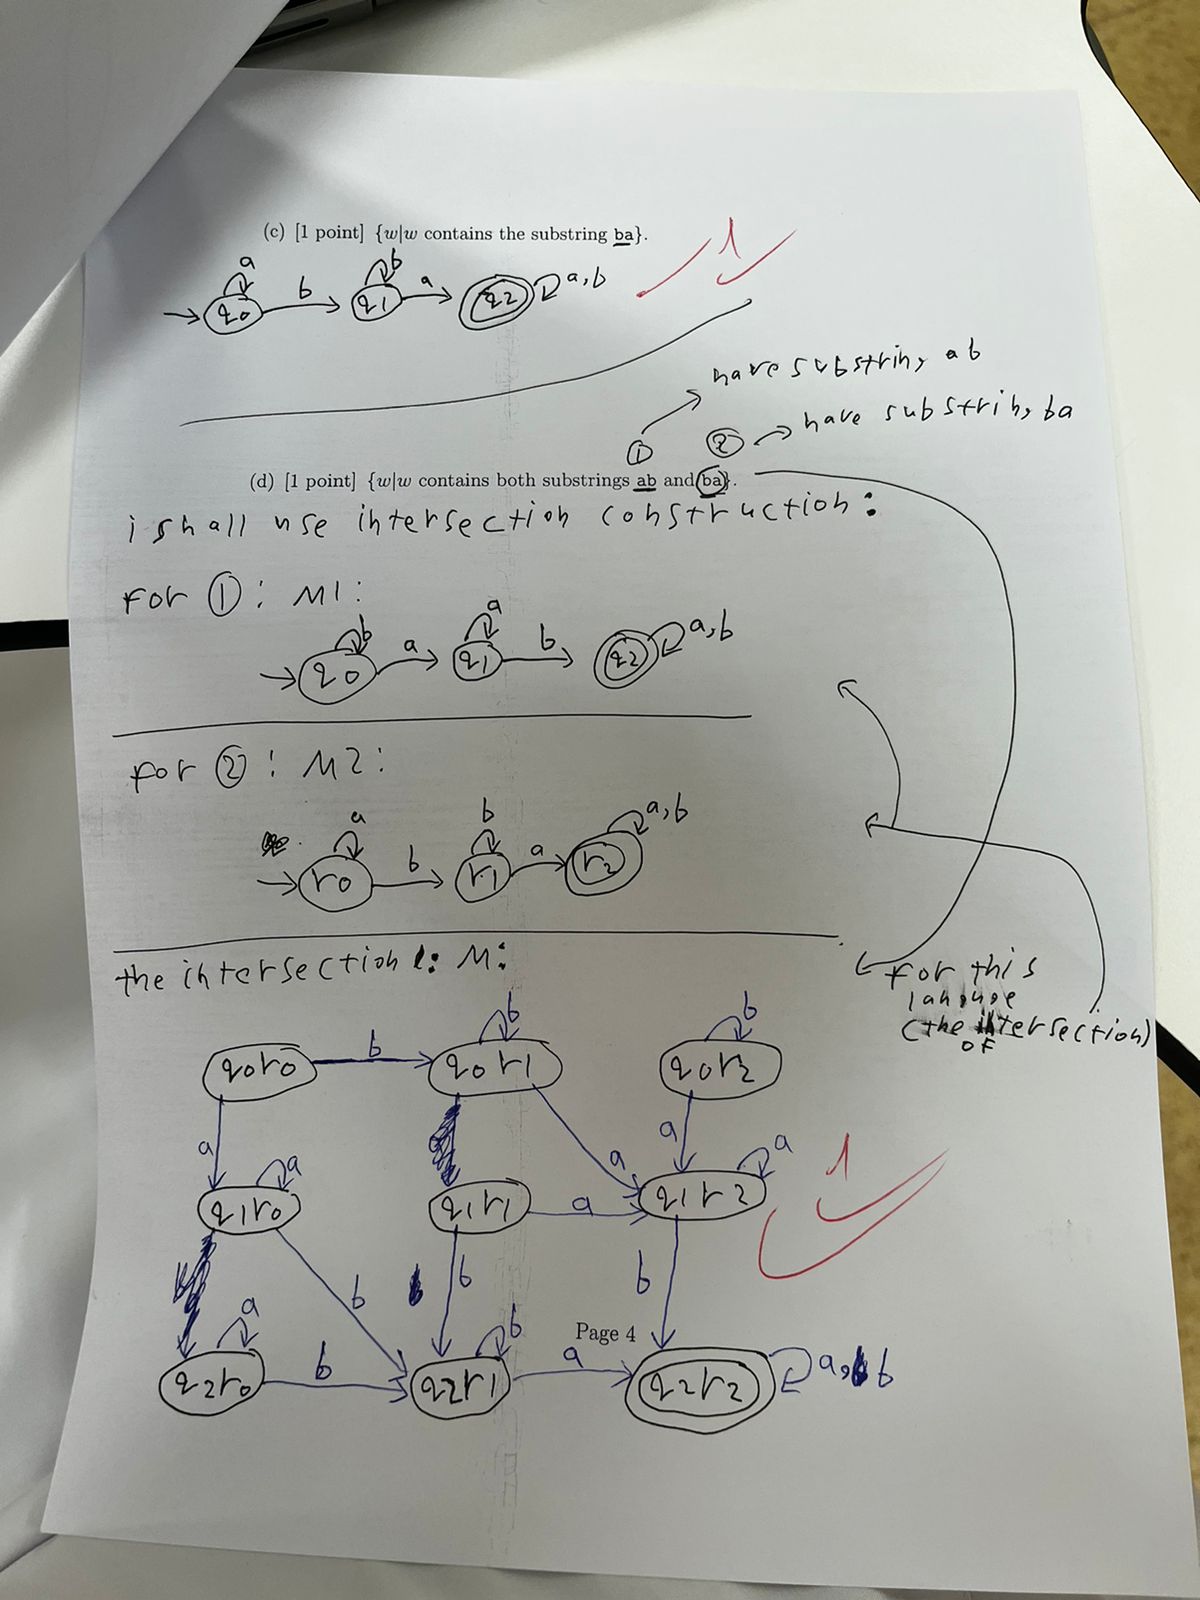 (c) [1 point] {w|w contains the substring ba}.
1
a
b
b
a
a,b
q0
q1
q2
have substring ab
① ② have substring ba
(d) [1 point] {w|w contains both substrings ab and ba}.
i shall use intersection construction:
for ①: M1:
b
a
a
b
a,b
q0
q1
q2
for ②: M2:
a
b
b
a
a,b
r0
r1
r2
the intersection : M:
for this
(the intersection)
of
b
b
b
q0r0
q0r1
q0r2
a
a
a
a
a
1
q1r0
q1r1
a
q1r2
b
b
b
a
b
Page 4
q2r0
b
q2r1
a
q2r2
a, b